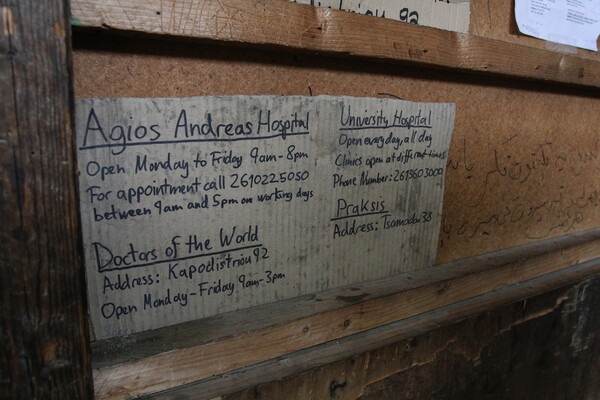 9a
Agios Andreas Hospital
Open Monday to Friday 9am-8pm
For appointment call 2610225050
between 9am and 5pm on working days
Doctors of the World
Address: Kapodistriou 92
Open Monday-Friday 9am-3pm
University Hospital
Open every day, all day
Clinics open at different times
Phone Number: 2613603000
Praksis
Address: Tsamadou 38